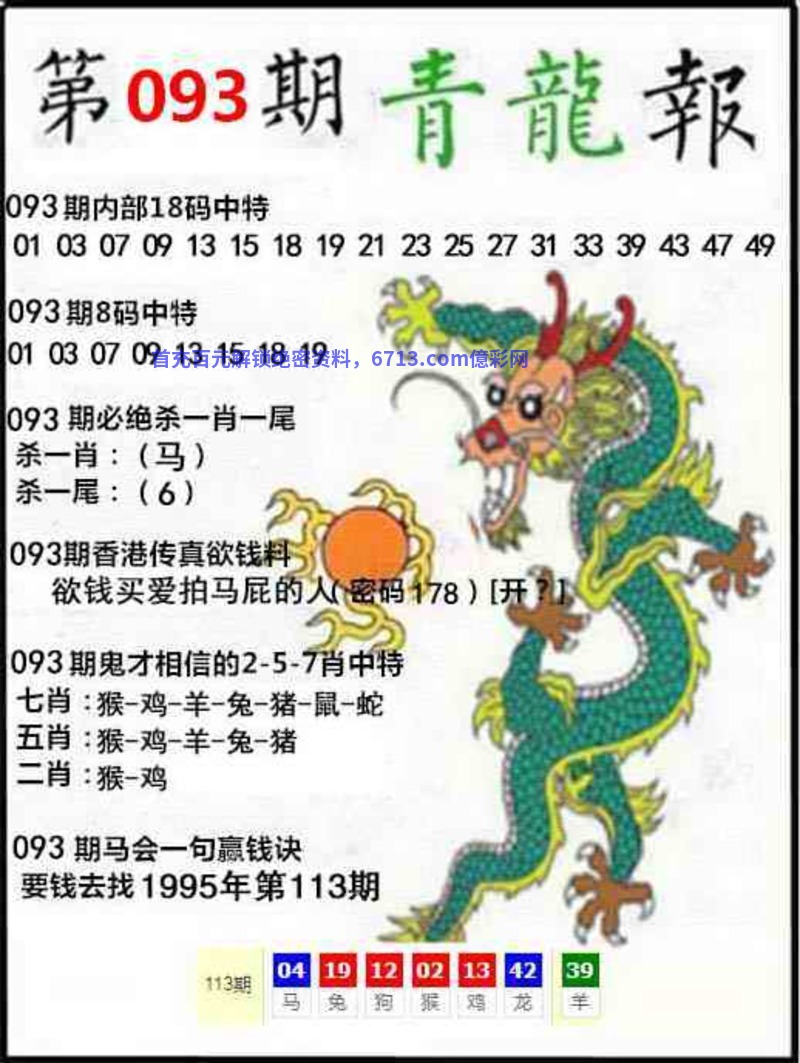 第093期青龍報
093期内部18码中特
01 03 07 09 13 15 18 19 21 23 25 27 31 33 39 43 47 49
093期8码中特
01 03 07 09 13 15 18 19
首充百元解锁绝密资料，6713.com億彩网
093期必绝杀一肖一尾
杀一肖：（马）
杀一尾：（6）
093期香港传真欲钱料
欲钱买爱拍马屁的人(密码178)[开？]
093期鬼才相信的2-5-7肖中特
七肖:猴-鸡-羊-兔-猪-鼠-蛇
五肖:猴-鸡-羊-兔-猪
二肖:猴-鸡
093期马会一句赢钱诀
要钱去找1995年第113期
113期 04 19 12 02 13 42 39
马 兔 狗 猴 鸡 龙 羊